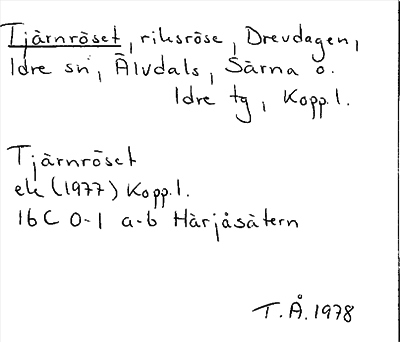 Tjärnröset, riksröse, Drevdagen,
Idre sn, Älvdals, Särna o.
Idre tg, Kopp.l.
Tjärnröset
ek (1977) Kopp.l.
16C 0-1 a-b Härjåsätern
T.Å.1978